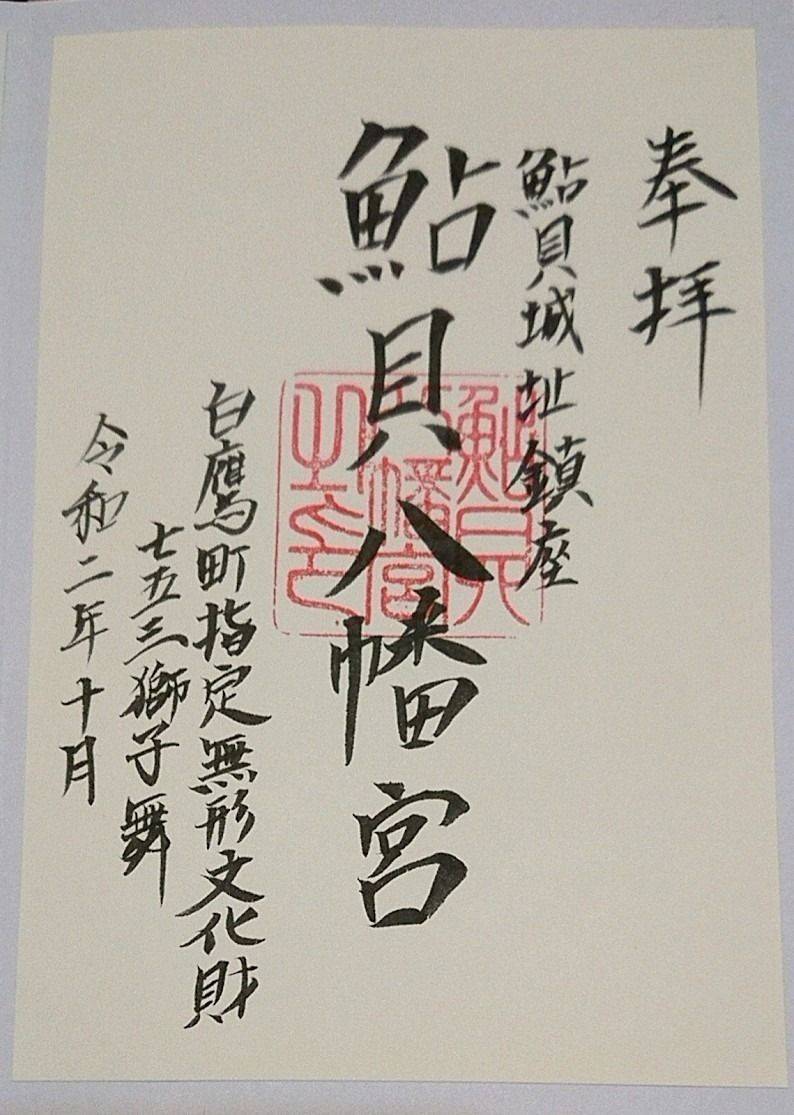 奉拝
鮎貝城址鎮座
鮎貝八幡宮
白鷹町指定無形文化財
七五三獅子舞
令和二年十月
鮎貝
八幡宮
之印